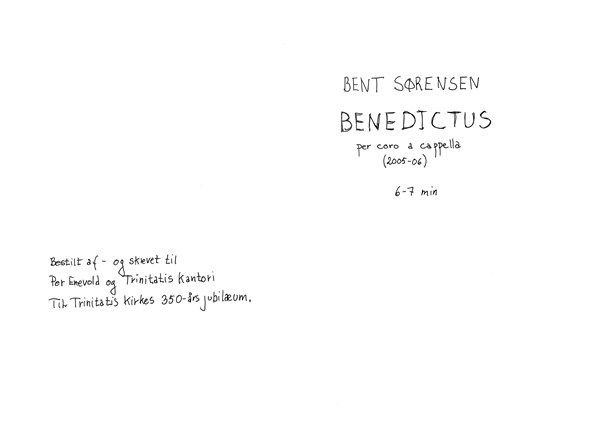 BENT SØRENSEN
BENEDICTUS
per coro a cappella
(2005-06)
6-7 min
Bestilt af - og skrevet til
Per Enevold og Trinitatis Kantori
Til Trinitatis Kirkes 350-års jubilæum.